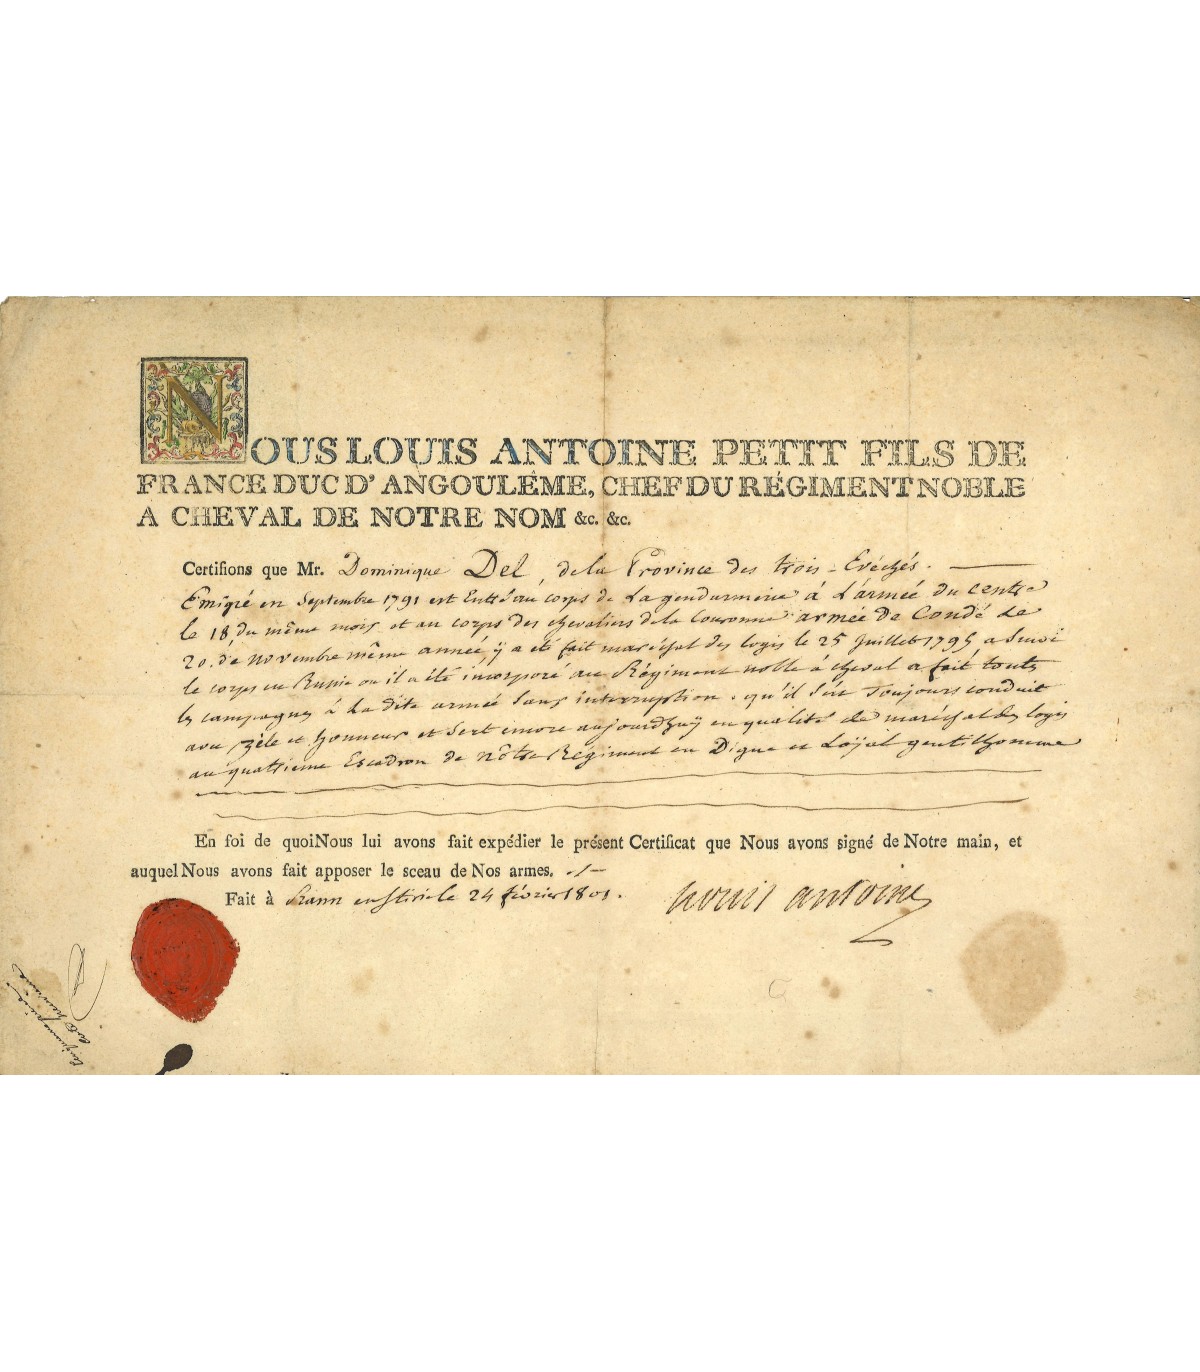 NOUS LOUIS ANTOINE PETIT FILS DE
FRANCE DUC D'ANGOULÊME, CHEF DU RÉGIMENT NOBLE
A CHEVAL DE NOTRE NOM &c. &c.
Certifions que Mr. Dominique Del, de la Province des trois-Evêchés.
Emigré en Septembre 1791 est Entré au corps de La gendarmerie à L'armée du centre
le 18 du même mois et au corps des chevaliers de la Couronne armée de Condé Le
20. de novembre même année, ÿ a été fait maréchal des logis le 25 juillet 1795 a suivi
le corps en Russie ou il a été incorporé au Régiment noble à cheval a fait touts
les campagnes à La dite armée sans interruption. qu'il s'est Toujours conduit
avec zèle et honneur et sert encore aujourdhuÿ en qualité de maréchal des logis
au quatrieme Escadron de nôtre Régiment en Digne et Loÿal gentilhomme
En foi de quoi Nous lui avons fait expédier le présent Certificat que Nous avons signé de Notre main, et
auquel Nous avons fait apposer le sceau de Nos armes.
Fait à Rann en Stirie le 24 février 1801.
Louis antoine